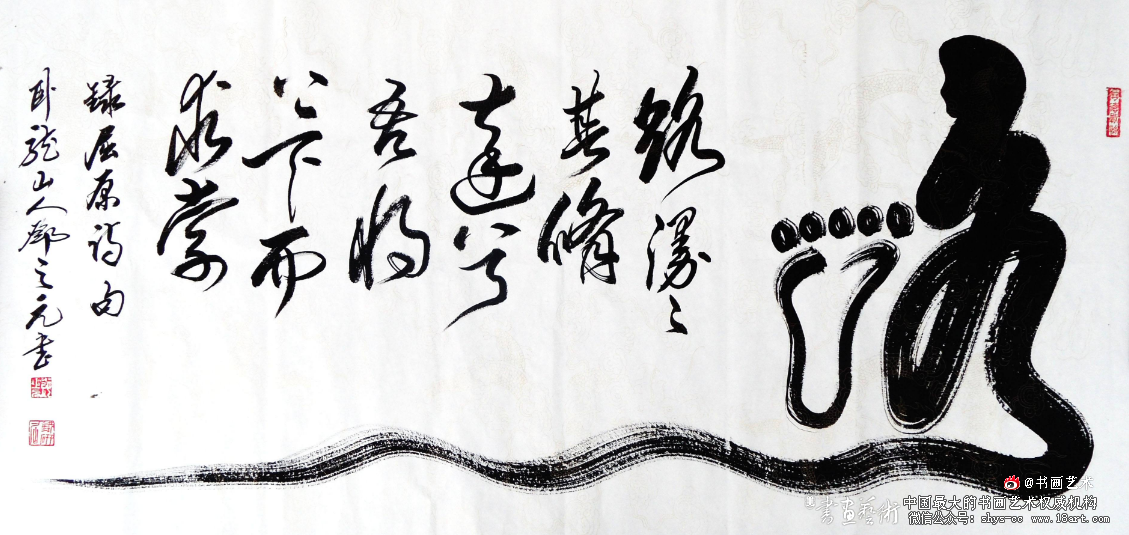 路漫〻
其脩
遠兮
吾将
上下而
求索
録屈原詩句
卧龍山人之元書
@书画艺术
書畫藝術
中国最大的书画艺术权威机构
微信公众号：shys-cc www.18art.com